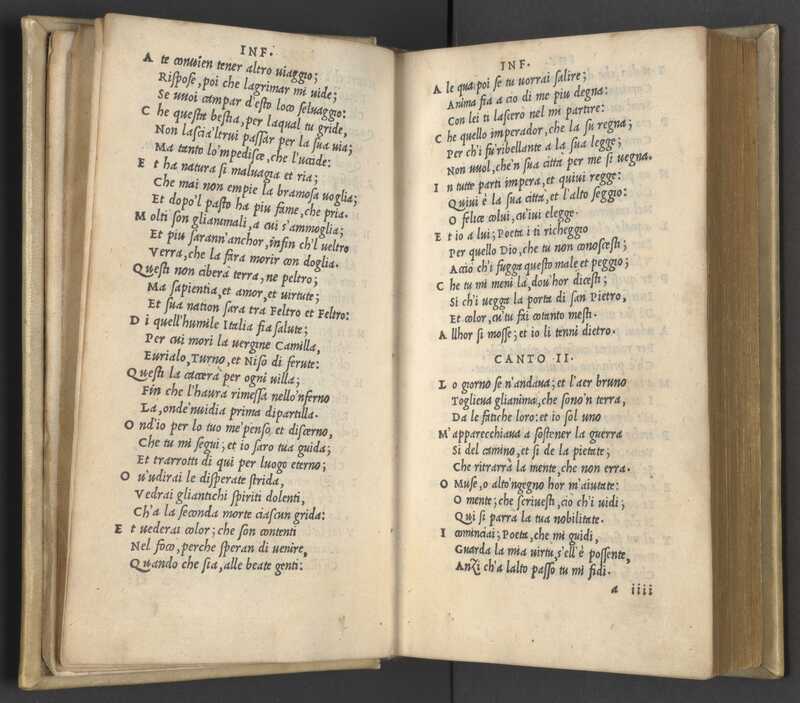 INF.
A te convien tener altro uiaggio;
Rispose, poi che lagrimar mi uide;
Se uuoi campar d'esto loco seluaggio:
C he questa bestia, per laqual tu gride,
Non lascia'ltrui passar per la sua uia;
Ma tanto lo'mpedisce, che l'uccide:
E t ha natura si maluagia et ria;
Che mai non empie la bramosa uoglia;
Et dopo'l pasto ha piu fame, che pria.
M olti son glianimali, a cui s'ammoglia;
Et piu sarann'anchor, infin ch'l ueltro
Verra, che la fara morir con doglia.
Questi non cibera terra, ne peltro;
Ma sapientia, et amor, et uirtute;
Et sua nation sara tra Feltro et Feltro:
D i quell'humile Italia fia salute;
Per cui mori la uergine Camilla,
Eurialo, Turno, et Niso di ferute:
Questi la caccerà per ogni uilla;
Fin che l'haura rimessa nello'nferno
La, onde'nuidia prima dipartilla.
O nd'io per lo tuo me'penso, et discerno,
Che tu mi segui; et io saro tua guida;
Et trarrotti di qui per luogo eterno;
O u'udirai le disperate strida,
Vedrai gliantichi spiriti dolenti,
Ch'a la seconda morte ciascun grida:
E t uederai color; che son contenti
Nel foco, perche speran di uenire,
Quando che sia, alle beate genti:
INF.
A le qua poi se tu uorrai salire;
Anima fia a cio di me piu degna:
Con lei ti lascerò nel mi partire:
C he quello imperador, che la su regna;
Per ch'i fu ribellante a la sua legge;
Non uuol, che'n sua città per me si uegna.
I n tutte parti impera, et quiui regge:
Quiui è la sua città, et l'alto seggio:
O felice colui, cu'iui elegge.
E t io a lui; Poeta i ti richeggio
Per quello Dio, che tu non conoscesti;
Accio ch'i fugga questo male et peggio;
C he tu mi meni là, dou'hor dicesti;
Si ch'i uegga la porta di san Pietro,
Et color, cu'tu fai cotanto mesti.
A llhor si mosse; et io li tenni dietro.
CANTO II.
L o giorno se n'andaua; et l'aer bruno
Toglieua glianima, che sono'n terra,
Da le fatiche loro: et io sol uno
M'apparecchiaua a sostener la guerra
Si del camino, et si de la pietate;
Che ritrarrà la mente, che non erra.
O Muse, o alto'ngegno hor m'aiutate:
O mente; che scriuesti, cio ch'i uidi;
Qui si parra la tua nobilitate.
I cominciai; Poeta, che mi guidi,
Guarda la mia uirtu, s'ell'è possente,
Anzi ch'a lalto passo tu mi fidi.
a iiii